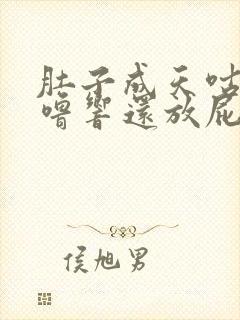 肚子成天咕
噜響還放屁
侯旭男